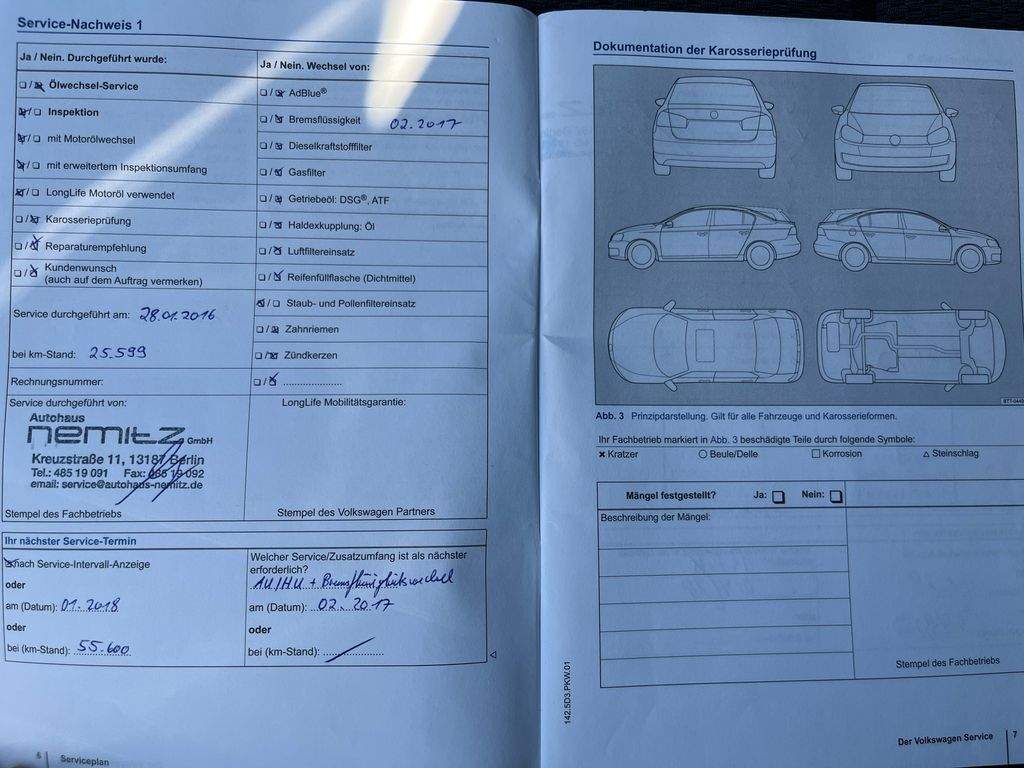 Service-Nachweis 1
Ja / Nein. Durchgeführt wurde:
Ölwechsel-Service
Inspektion
mit Motorölwechsel
mit erweitertem Inspektionsumfang
LongLife Motoröl verwendet
Karosserieprüfung
Reparaturempfehlung
Kundenwunsch
(auch auf dem Auftrag vermerken)
Service durchgeführt am: 28.01.2016
bei km-Stand: 25.599
Rechnungsnummer:
Service durchgeführt von:
Autohaus
nemitz GmbH
Kreuzstraße 11, 13187 Berlin
Tel.: 485 19 091 Fax: 485 19 092
email: service@autohaus-nemitz.de
Stempel des Fachbetriebs
Ja / Nein. Wechsel von:
AdBlue®
Bremsflüssigkeit 02.2017
Dieselkraftstofffilter
Gasfilter
Getriebeöl: DSG®, ATF
Haldexkupplung: Öl
Luftfiltereinsatz
Reifenfüllflasche (Dichtmittel)
Staub- und Pollenfiltereinsatz
Zahnriemen
Zündkerzen
LongLife Mobilitätsgarantie:
Stempel des Volkswagen Partners
Ihr nächster Service-Termin
nach Service-Intervall-Anzeige
oder
am (Datum): 01.2018
oder
bei (km-Stand): 55.600
Welcher Service/Zusatzumfang ist als nächster
erforderlich?
AU/HU + Bremsflüssigkeitswechsel
am (Datum): 02.2017
oder
bei (km-Stand):
6 Serviceplan
Dokumentation der Karosserieprüfung
Abb. 3 Prinzipdarstellung. Gilt für alle Fahrzeuge und Karosserieformen.
Ihr Fachbetrieb markiert in Abb. 3 beschädigte Teile durch folgende Symbole:
Kratzer Beule/Delle Korrosion Steinschlag
Mängel festgestellt? Ja: Nein:
Beschreibung der Mängel:
Stempel des Fachbetriebs
142.5D3.PKW.01
Der Volkswagen Service 7